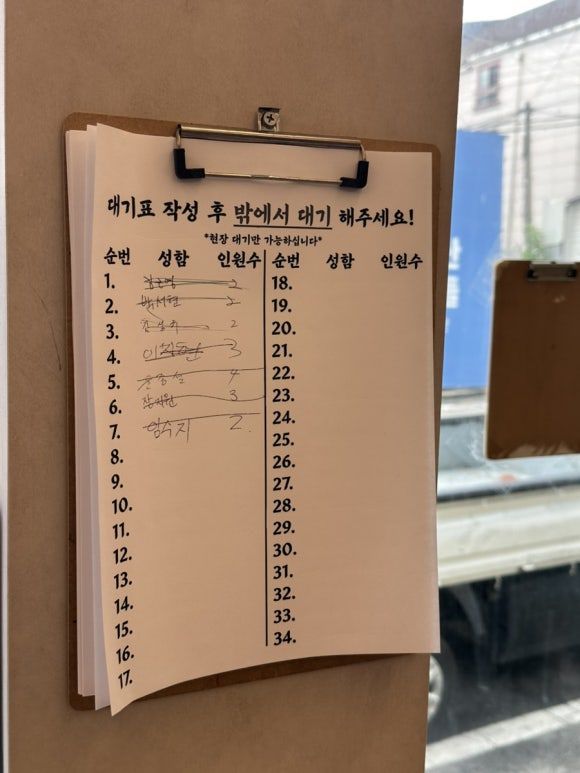 대기표 작성 후 밖에서 대기 해주세요!
*현장 대기만 가능하십니다*
순번 성함 인원수 순번 성함 인원수
1. 2 18.
2. 박서현 2 19.
3. 2 20.
4. 3 21.
5. 4 22.
6. 3 23.
7. 엄수지 2. 24.
8. 25.
9. 26.
10. 27.
11. 28.
12. 29.
13. 30.
14. 31.
15. 32.
16. 33.
17. 34.